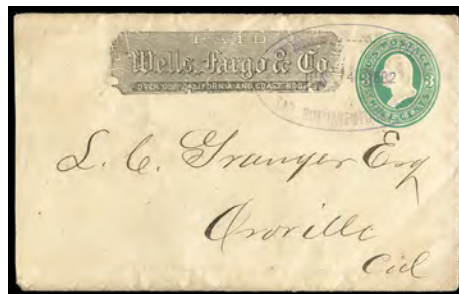 PAID
Wells, Fargo & Co.
OVER OUR CALIFORNIA AND COAST ROUTES
U.S. POSTAGE
3 3
THREE CENTS
L. C. Granger Esq
Oroville
Cal